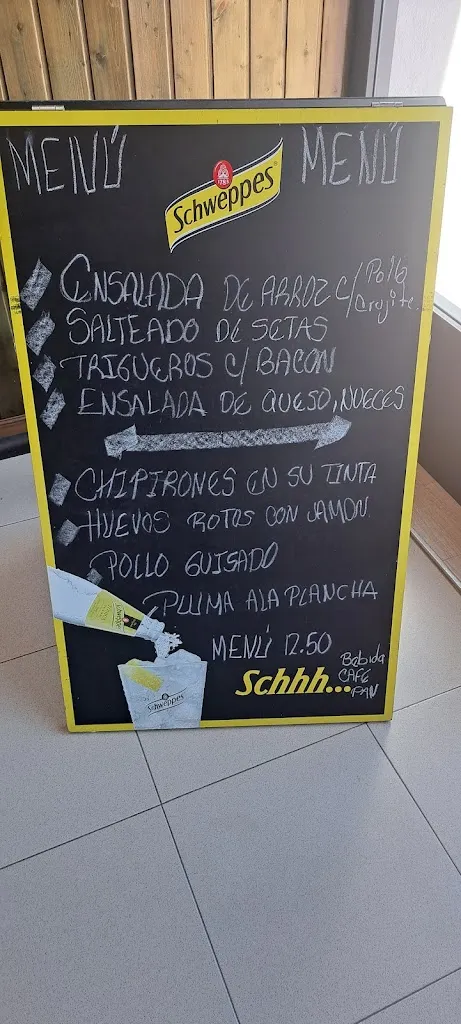 MENÚ
MENÚ
1783
Schweppes
ENSALADA DE ARROZ C/Pollo
Crujite.
SALTEADO DE SETAS
TRIGUEROS C/BACON
ENSALADA DE QUESO, NUECES
CHIPIRONES EN SU TINTA
HUEVOS ROTOS CON JAMON
POLLO GUISADO
PLUMA A LA PLANCHA
MENÚ 12.50
Bebida
CAFÉ
PAN
Schhh...
Schweppes